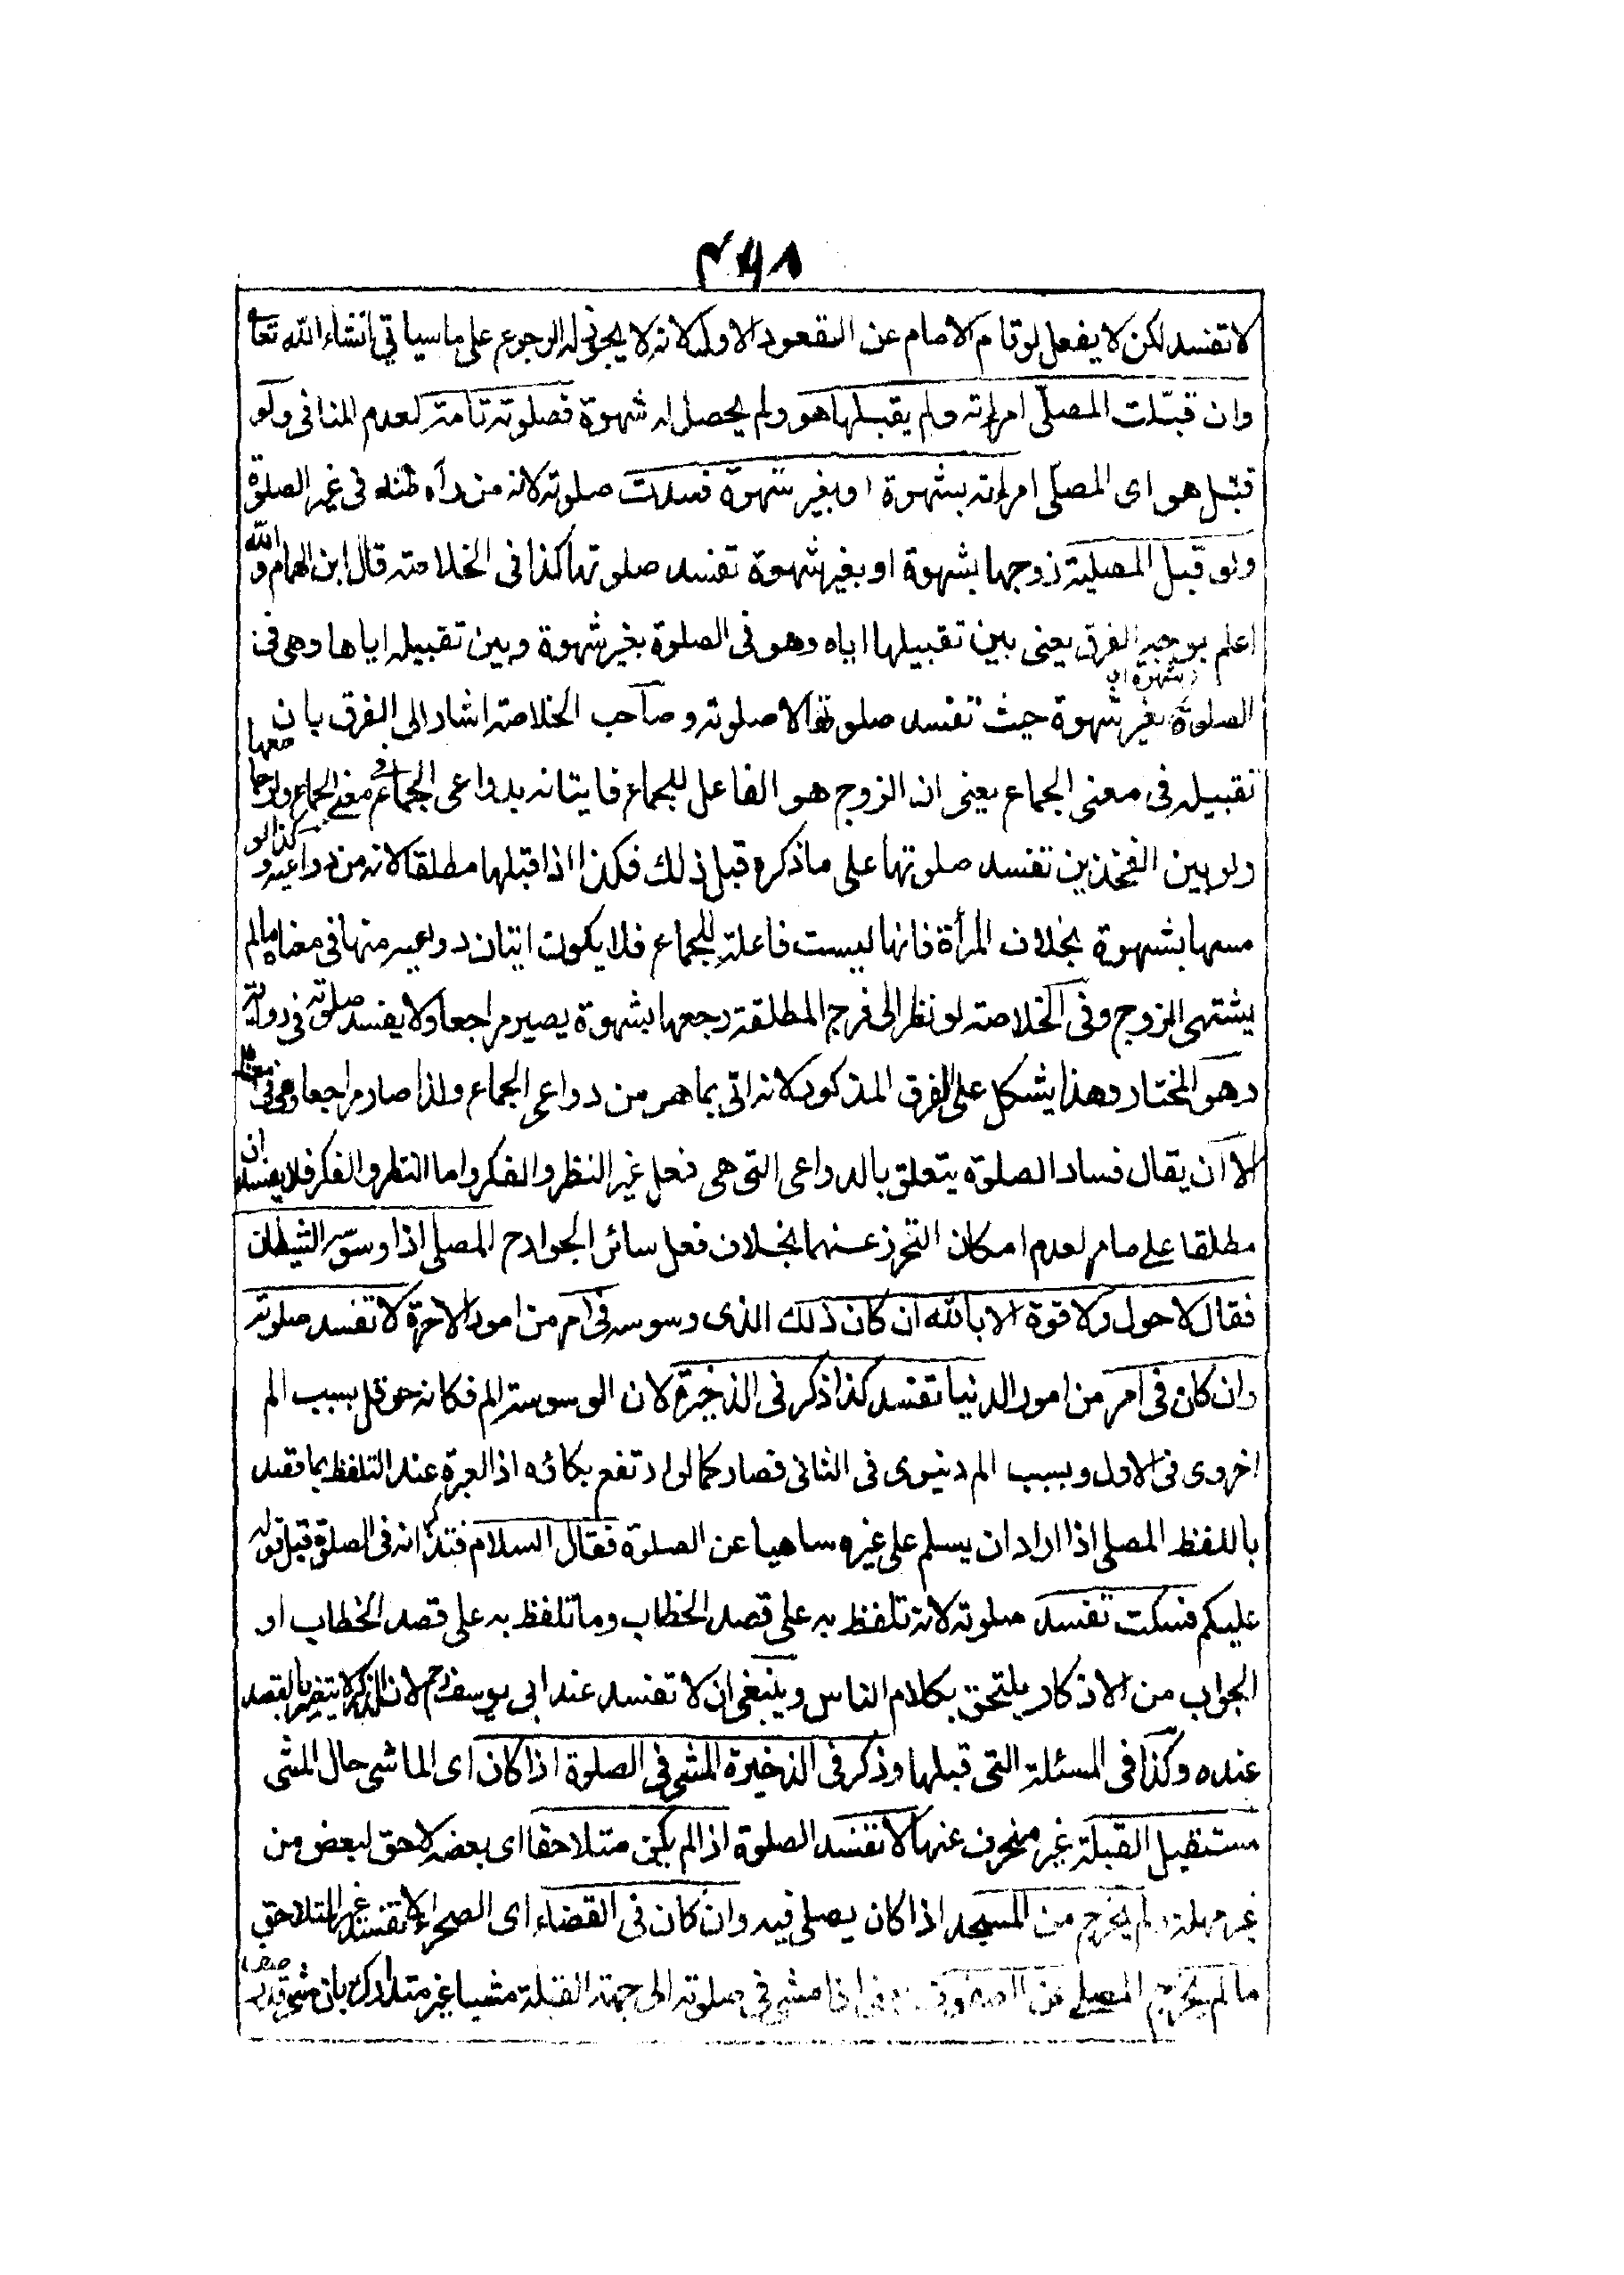 ۴۶۸
لا تفسد لكن لا يفعل لو قام الامام عن القعود الاول لانه لا يجوز له الرجوع على ما سياتي انشاء الله تعا
وان قبّلت المصلّى امرأته ولم يقبلها هو ولم يحصل له شهوة فصلوته تامة لعدم المنافى ولو
قبّل هو اى المصلّى امرأته بشهوة او بغير شهوة فسدت صلوته لانه من رآه ظنه فى غير الصلوة
ولو قبل المصلية زوجها بشهوة او بغير شهوة تفسد صلوتها كذا فى الخلاصة قال ابن الهمام والله
اعلم بوجه الفرق يعنى بين تقبيلها اياه وهو فى الصلوة بغير شهوة وبين تقبيله اياها وهى فى
الصلوة بشهوة او بغير شهوة حيث تفسد صلوتها لا صلوته وصاحب الخلاصة اشار الى الفرق بان
تقبيله فى معنى الجماع يعنى ان الزوج هو الفاعل للجماع فاتيانه بدواعى الجماع فى معنى الجماع ولو جامعها
ولو بين الفخذين تفسد صلوتها على ما ذكره قبل ذلك فكذا اذا قبلها مطلقا لانه من دواعيه وكذا لو
مسها بشهوة بخلاف المرأة فانها ليست فاعلة للجماع فلا يكون اتيان دواعيه منها فى معناه ما لم
يشتهى الزوج وفى الخلاصة لو نظر الى فرج المطلقة رجعيا بشهوة يصير مراجعا ولا يفسد صلوته فى رواية
وهو المختار وهذا يشكل على الفرق المذكور لانه اتى بما هو من دواعى الجماع ولذا صار مراجعا وهى فى معناه
الا ان يقال فساد الصلوة يتعلق بالدواعى التى هى فعل غير النظر والفكر واما النظر والفكر فلا يفسدان
مطلقا على ما مر لعدم امكان التحرز عنهما بخلاف فعل سائر الجوارح المصلى اذا وسوسه الشيطان
فقال لا حول ولا قوة الا بالله ان كان ذلك الذى وسوسه فى امر من امور الآخرة لا تفسد صلوته
وان كان فى امر من امور الدنيا تفسد كذا ذكر فى الذخيرة لان الوسوسة الم فكانه حوقل بسبب الم
اخروى فى الاول وبسبب الم دنيوى فى الثانى فصار كما لو ارتفع بكائه اذ العبرة عند التلفظ بما قصد
باللفظ المصلى اذا اراد ان يسلم على غيره ساهيا عن الصلوة فقال السلام فتذكر انه فى الصلوة قبل قوله
عليكم فسكت تفسد صلوته لانه تلفظ به على قصد الخطاب وما تلفظ به على قصد الخطاب او
الجواب من الاذكار يلتحق بكلام الناس وينبغى ان لا تفسد عند ابى يوسف رح لان الذكر لا يتغير بالقصد
عنده وكذا فى المسئلة التى قبلها وذكر فى الذخيرة المشى فى الصلوة اذا كان اى الماشى حال المشى
مستقبل القبلة غير منحرف عنها لا تفسد الصلوة اذا لم يكن متلاحقا اى بعضه لاحق لبعض من
غير مهلة ولم يخرج من المسجد اذا كان يصلى فيه وان كان فى الفضاء اى الصحراء لا تفسد غير المتلاحق
ما لم يخرج المصلى عن الصفوف اذا مشى فى صلوته الى جهة القبلة مشيا غير متدارك بان مشى قدر صف